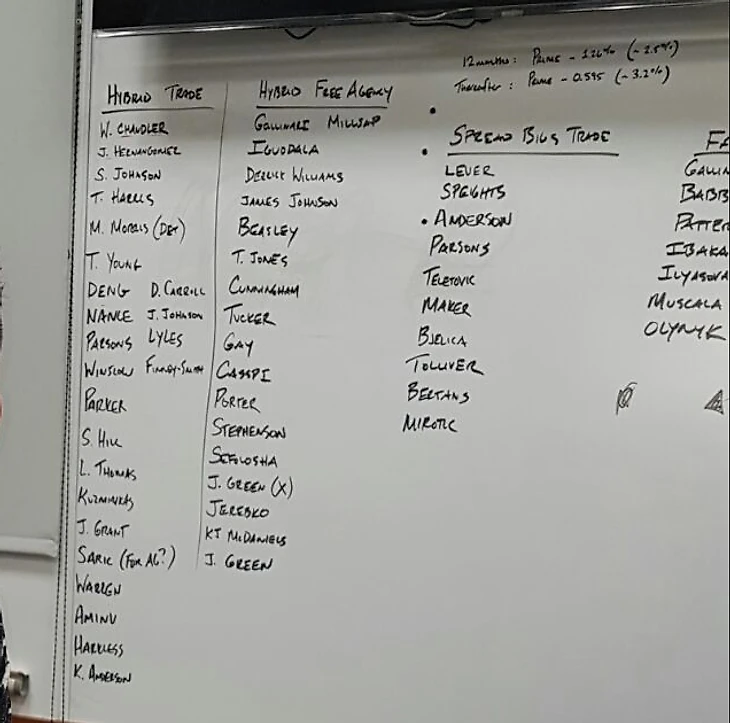 12 months: Prime - 1.26% (~2.5%)
Thereafter: Prime - 0.595 (~3.2%)
HYBRID TRADE
W. CHANDLER
J. HERNANGOMEZ
S. JOHNSON
T. HARRIS
M. MORRIS (DET)
T. YOUNG
DENG D. CARROLL
NANCE J. JOHNSON
PARSONS LYLES
WINSLOW FINNEY-SMITH
PARKER
S. HILL
L. THOMAS
KUZMINKAS
J. GRANT
SARIC (FOR AG?)
WARREN
AMINU
HARKLESS
K. ANDERSON
HYBRID FREE AGENCY
GALLINARI MILLSAP
IGUODALA
DERRICK WILLIAMS
JAMES JOHNSON
BEASLEY
T. JONES
CUNNINGHAM
TUCKER
GAY
CASSPI
PORTER
STEPHENSON
SEFOLOSHA
J. GREEN (X)
JEREBKO
KJ MCDANIELS
J. GREEN
SPREAD BIGS TRADE
LEUER
SPEIGHTS
• ANDERSON
PARSONS
TELETOVIC
MAKER
BJELICA
TOLLIVER
BERTANS
MIROTIC
FA
GALLIN
BABB
PATTER
IBAKA
ILYASOVA
MUSCALA
OLYNYK